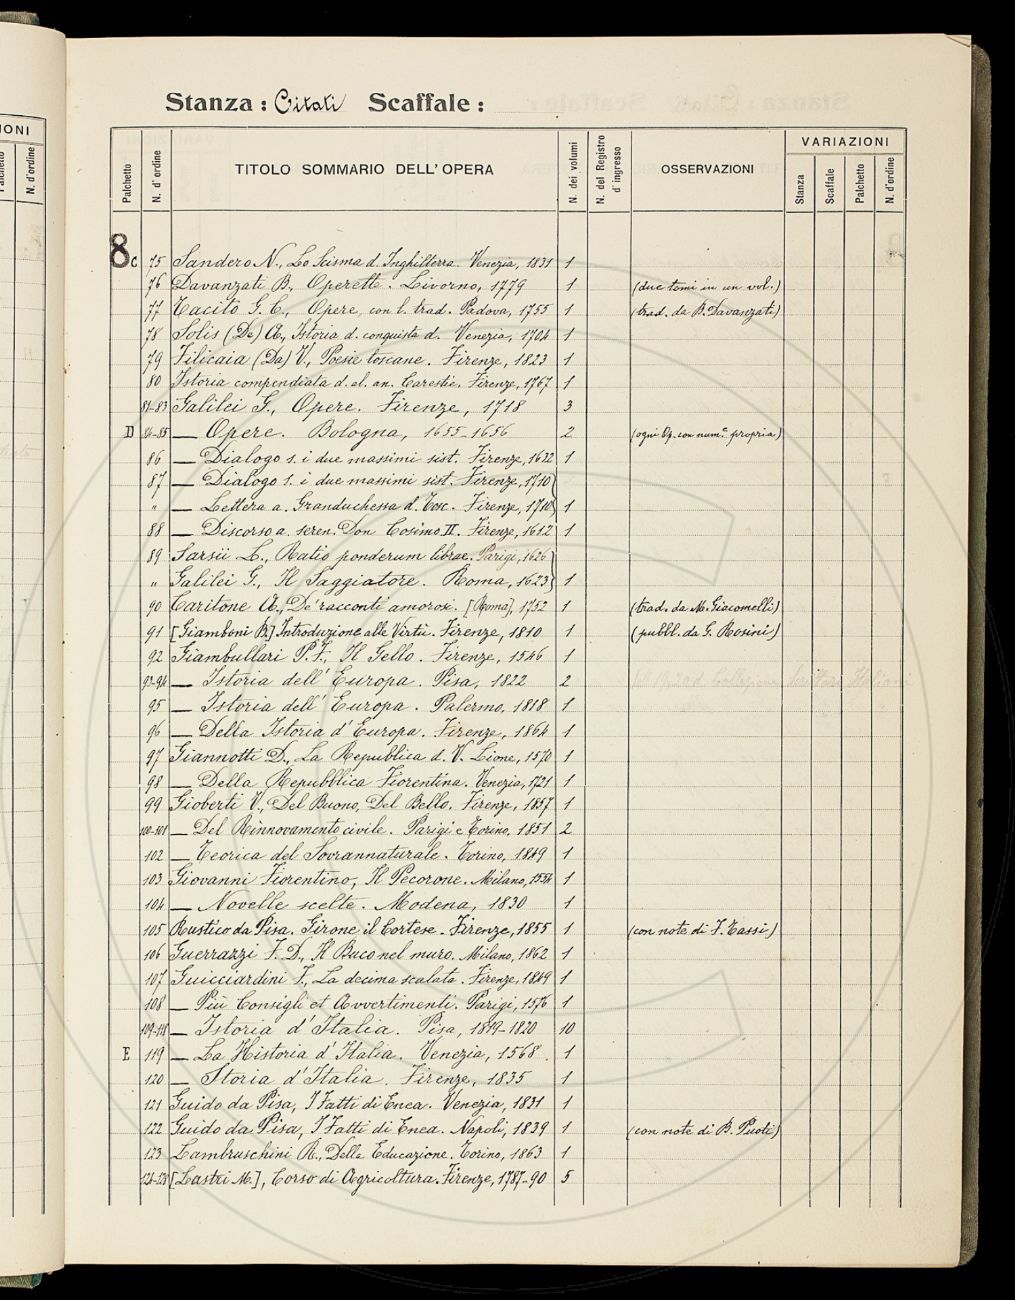 Stanza : Citati Scaffale :
Palchetto N. d'ordine TITOLO SOMMARIO DELL'OPERA N. dei volumi N. del Registro d'ingresso OSSERVAZIONI VARIAZIONI
Stanza Scaffale Palchetto N. d'ordine
8
C 75 Sandero N., Lo Scisma d. Inghilterra. Venezia, 1831 1
76 Davanzati B., Operette. Livorno, 1779 1 (due tomi in un vol.)
77 Tacito G. C., Opere, con l. trad. Padova, 1755 1 (trad. da B. Davanzati)
78 Solis (De) A., Istoria d. conquista d. Venezia, 1704 1
79 Filicaia (Da) V., Poesie toscane. Firenze, 1823 1
80 Istoria compendiata d. al. an. Carestie. Firenze, 1767 1
81-83 Galilei G., Opere. Firenze, 1718 3
D 84-85 — Opere. Bologna, 1655-1656 2 (ogni Op. con num.e propria)
86 — Dialogo s. i due massimi sist. Firenze, 1632 1
87 — Dialogo s. i due massimi sist. Firenze, 1710
" — Lettera a. Granduchessa d. Tosc. Firenze, 1710 1
88 — Discorso a. seren. Don Cosimo II. Firenze, 1612 1
89 Sarsii L., Ratio ponderum librae. Parigi, 1626
" Galilei G., Il Saggiatore. Roma, 1623 1
90 Caritone A., De' racconti amorosi. [Roma], 1752 1 (trad. da M. Giacomelli)
91 [Giamboni B.] Introduzione alle Virtù. Firenze, 1810 1 (pubbl. da G. Rosini)
92 Giambullari P. F., Il Gello. Firenze, 1546 1
93-94 — Istoria dell' Europa. Pisa, 1822 2
95 — Istoria dell' Europa. Palermo, 1818 1
96 — Della Istoria d' Europa. Firenze, 1864 1
97 Giannotti D., La Republica d. V. Lione, 1570 1
98 — Della Repubblica Fiorentina. Venezia, 1721 1
99 Gioberti V., Del Buono, Del Bello. Firenze, 1857 1
100-101 — Del Rinnovamento civile. Parigi e Torino, 1851 2
102 — Teorica del Sovrannaturale. Torino, 1849 1
103 Giovanni Fiorentino, Il Pecorone. Milano, 1554 1
104 — Novelle scelte. Modena, 1830 1
105 Rustico da Pisa. Girone il Cortese. Firenze, 1855 1 (con note di F. Tassi)
106 Guerrazzi F. D., Il Buco nel muro. Milano, 1862 1
107 Guicciardini F., La decima scalata. Firenze, 1849 1
108 — Più Consigli et Avvertimenti. Parigi, 1576 1
109-118 — Istoria d' Italia. Pisa, 1819-1820 10
E 119 — La Historia d' Italia. Venezia, 1568. 1
120 — Storia d' Italia. Firenze, 1835 1
121 Guido da Pisa, I Fatti di Enea. Venezia, 1831 1
122 Guido da Pisa, I Fatti di Enea. Napoli, 1839 1 (con note di B. Puoti)
123 Lambruschini R., Della Educazione. Torino, 1863 1
124-128 [Lastri M.], Corso di Agricoltura. Firenze, 1787-90 5